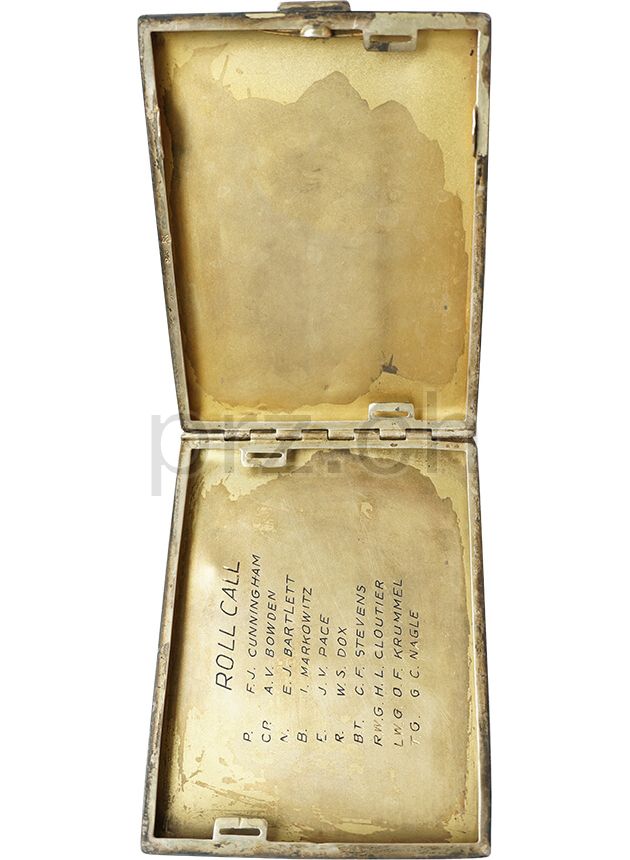 ROLL CALL
P. F. J. CUNNINGHAM
CP. A. V. BOWDEN
N. E. J. BARTLETT
B. I. MARKOWITZ
E. J. V. PACE
R. W. S. DOX
BT. C. F. STEVENS
R.W.G. H. L. CLOUTIER
L.W.G. O. F. KRUMMEL
T.G. G. C. NAGLE
prz.ch